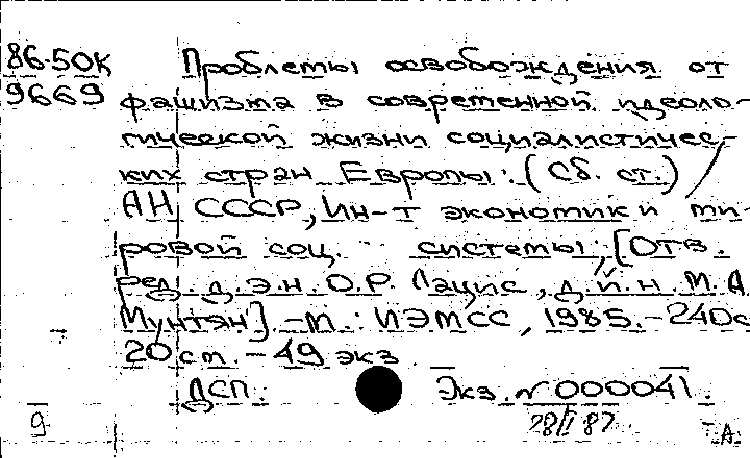 86-50К Проблемы освобождения от
9669 фашизма в современной идеоло-
гической жизни социалистичес-
ких стран Европы: (Сб. ст.) /
АН СССР, Ин-т экономики ми-
ровой соц. системы; [Отв.
ред. д.э.н. О.Р. Лацис, д.й.н. М.А.
Мунтян]. -М.: ИЭМСС, 1985.-240с
20 см. - 49 экз
ДСП. Экз. № 000041.
9 28/II 87 Т.А.